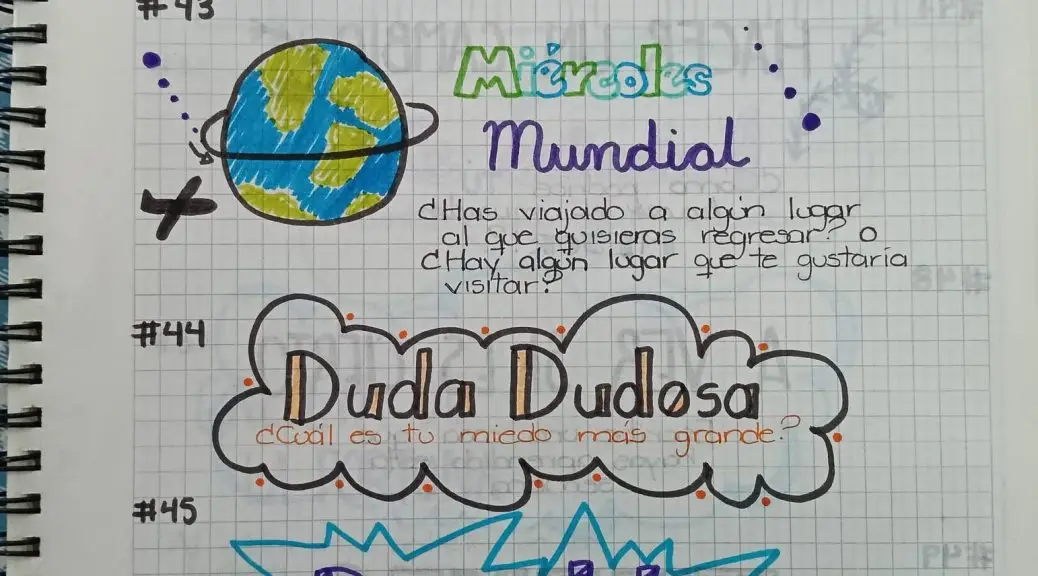 #43
Miércoles
Mundial
¿Has viajado a algún lugar
al que quisieras regresar? o
¿Hay algún lugar que te gustaría
visitar?
#44
Duda Dudosa
¿Cuál es tu miedo más grande?
#45